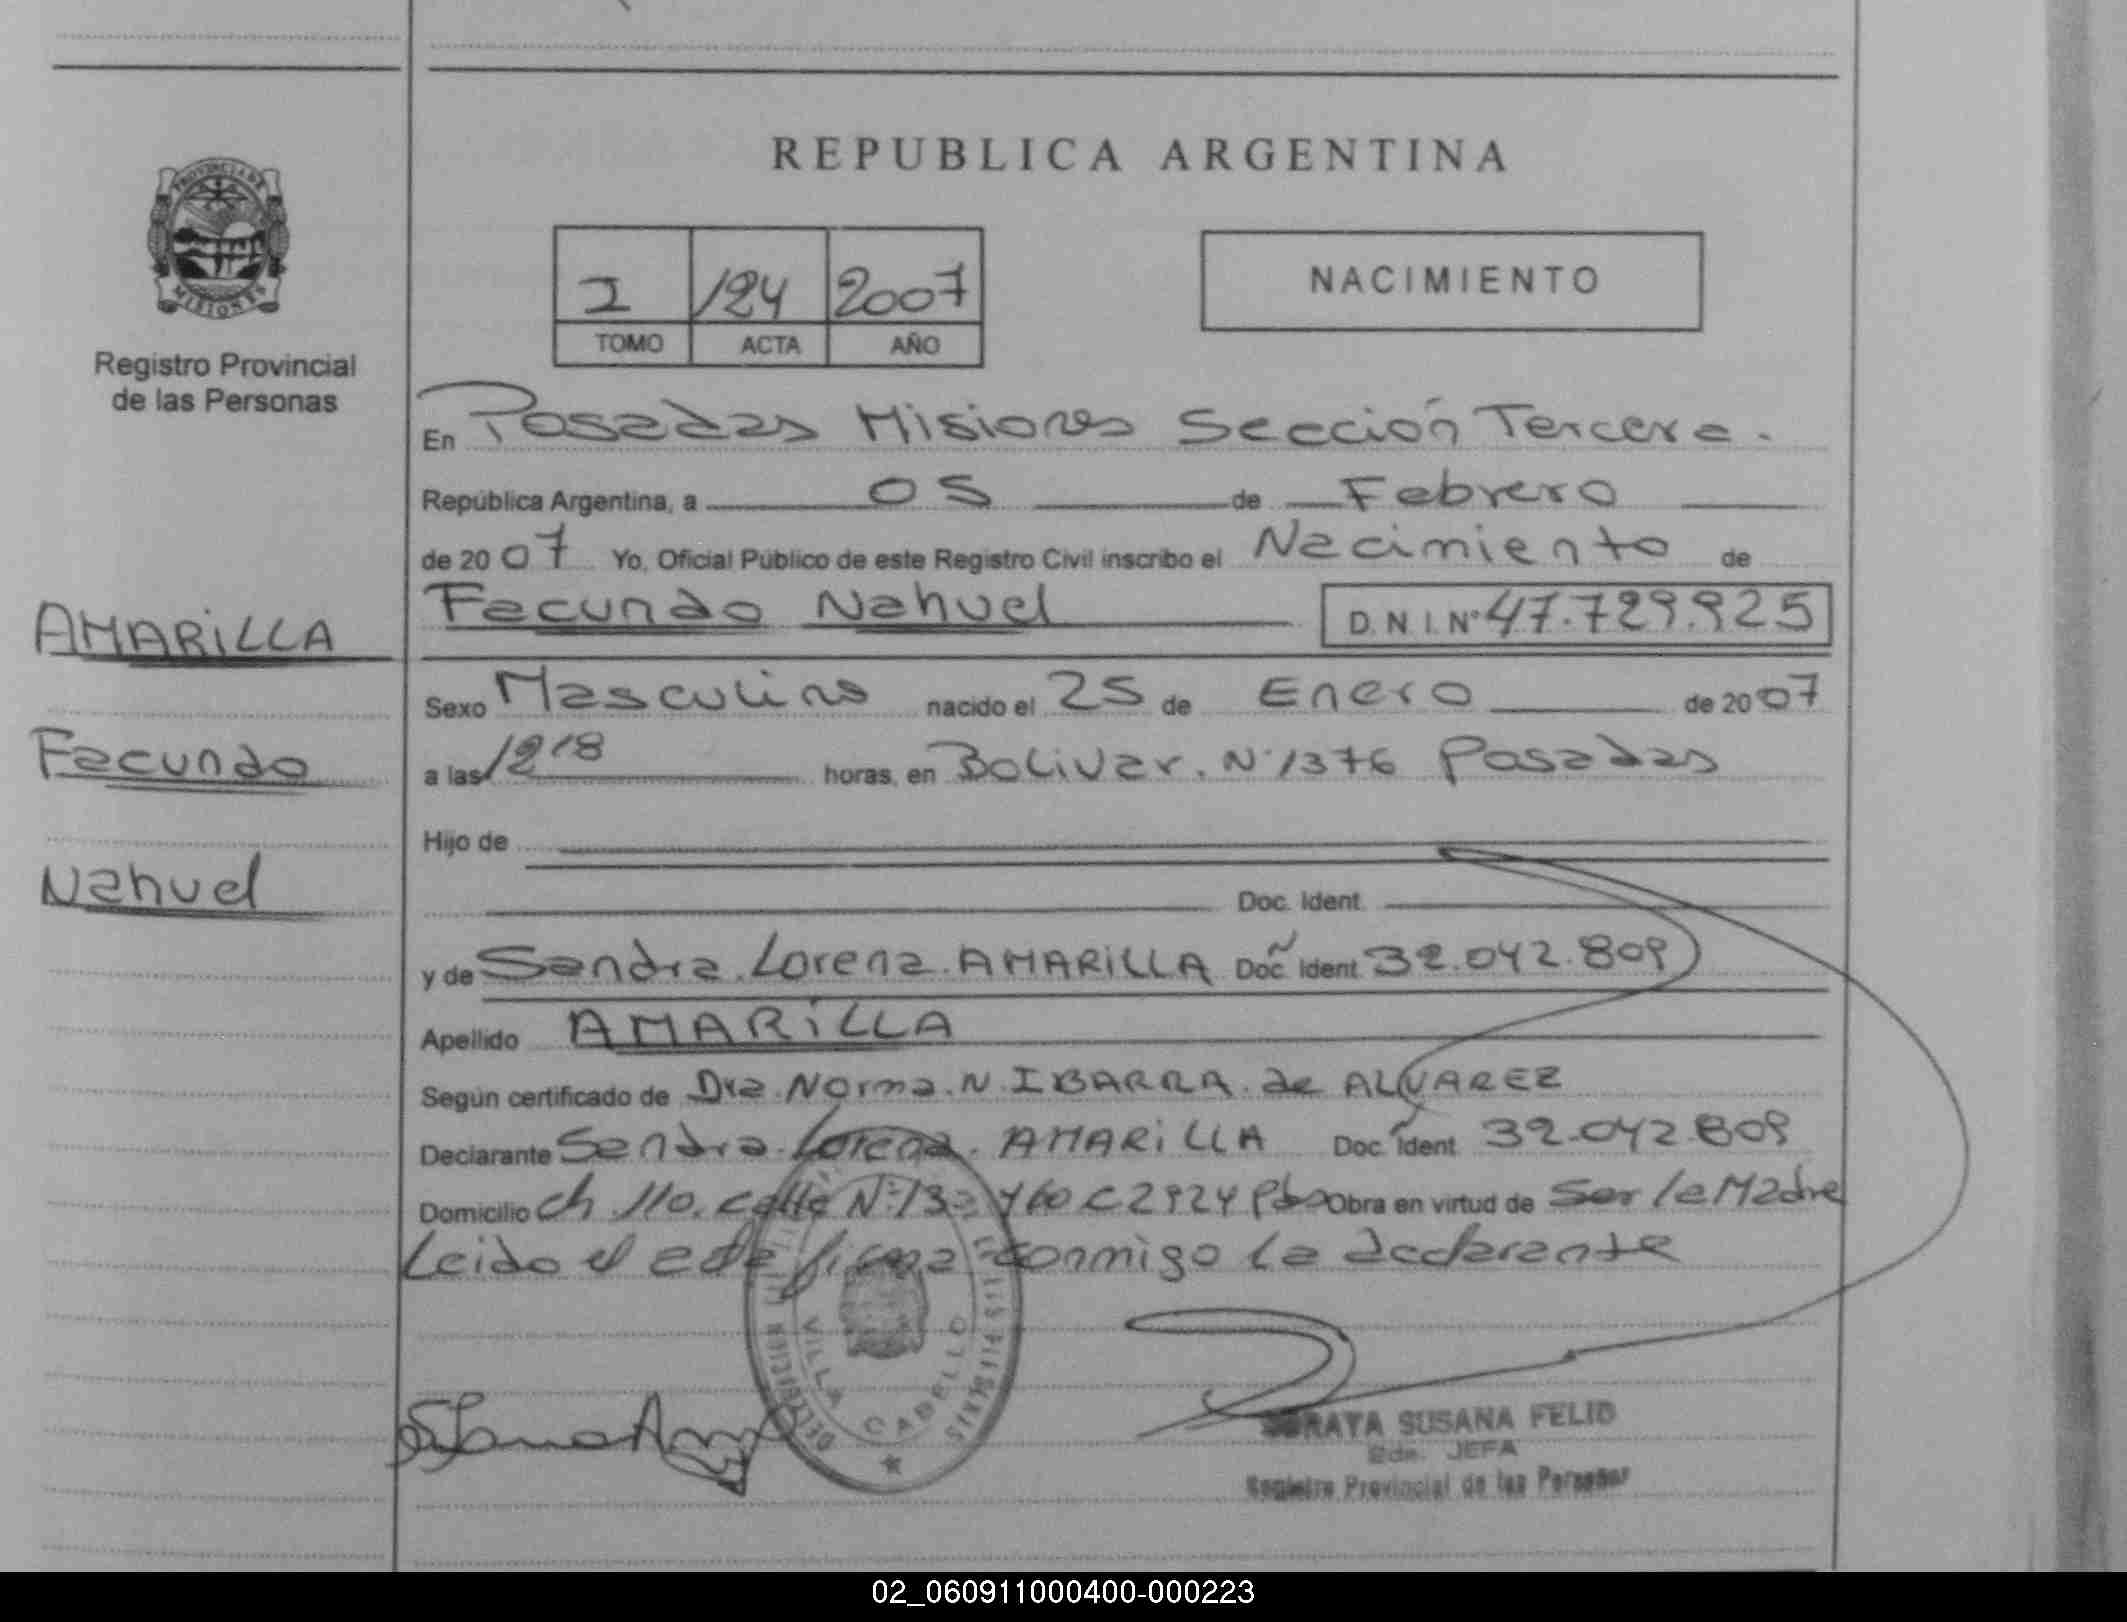 REPUBLICA ARGENTINA
PROVINCIA DE MISIONES
Registro Provincial
de las Personas
I /24 2007
TOMO ACTA AÑO
NACIMIENTO
En Posadas Misiones Sección Tercera.
República Argentina, a 05 de Febrero
de 2007 Yo, Oficial Público de este Registro Civil inscribo el Nacimiento de
Facundo Nahuel D.N.I. Nº 47.729.925
AMARiLLA
Sexo Masculino nacido el 25 de Enero de 2007
Facundo
a las 1218 horas, en Bolivar. Nº 1376 Posadas
Hijo de
Nahuel
Doc. Ident.
y de Sandra Lorena AMARiLLA Doc. Ident. 32.042.809
Apellido AMARiLLA
Según certificado de Dra. Norma. N. IBARRA. de ALVAREZ
Declarante Sandra Lorena. AMARiLLA Doc. Ident. 32.042.809
Domicilio ch 110. calle Nº 13 C 2924 Pdas Obra en virtud de Ser la Madre
Leido el acta firma conmigo la declarante
VILLA CABELLO
SORAYA SUSANA FELIP
JEFA
Registro Provincial de las Personas
02_060911000400-000223